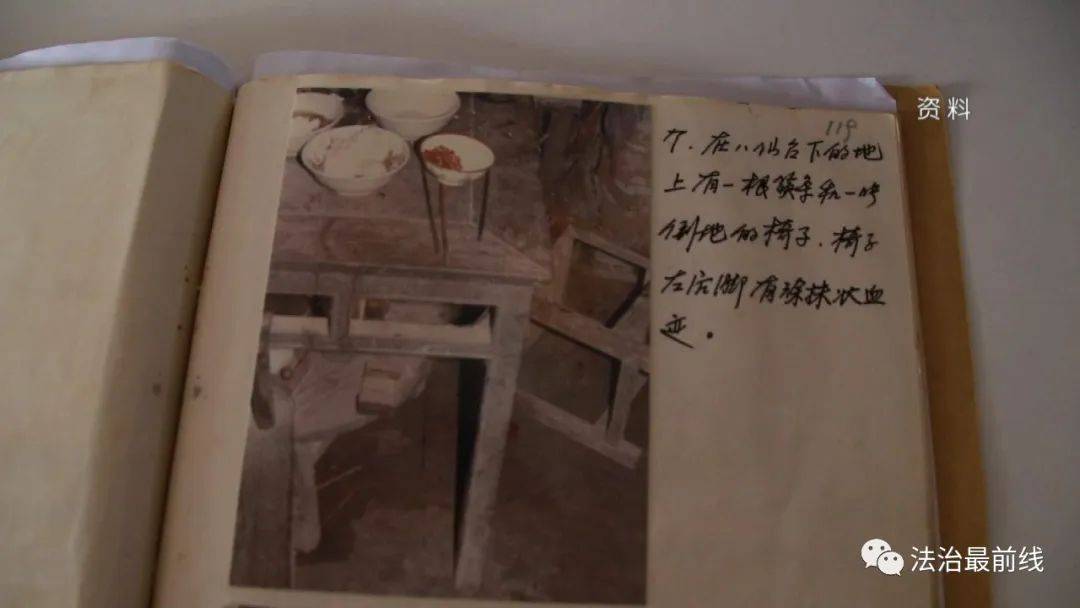 资料
119
7. 在八仙台下的地
上有一根筷条和一 
倒地的椅子.椅子
左后脚有涂抹状血
迹。
法治最前线